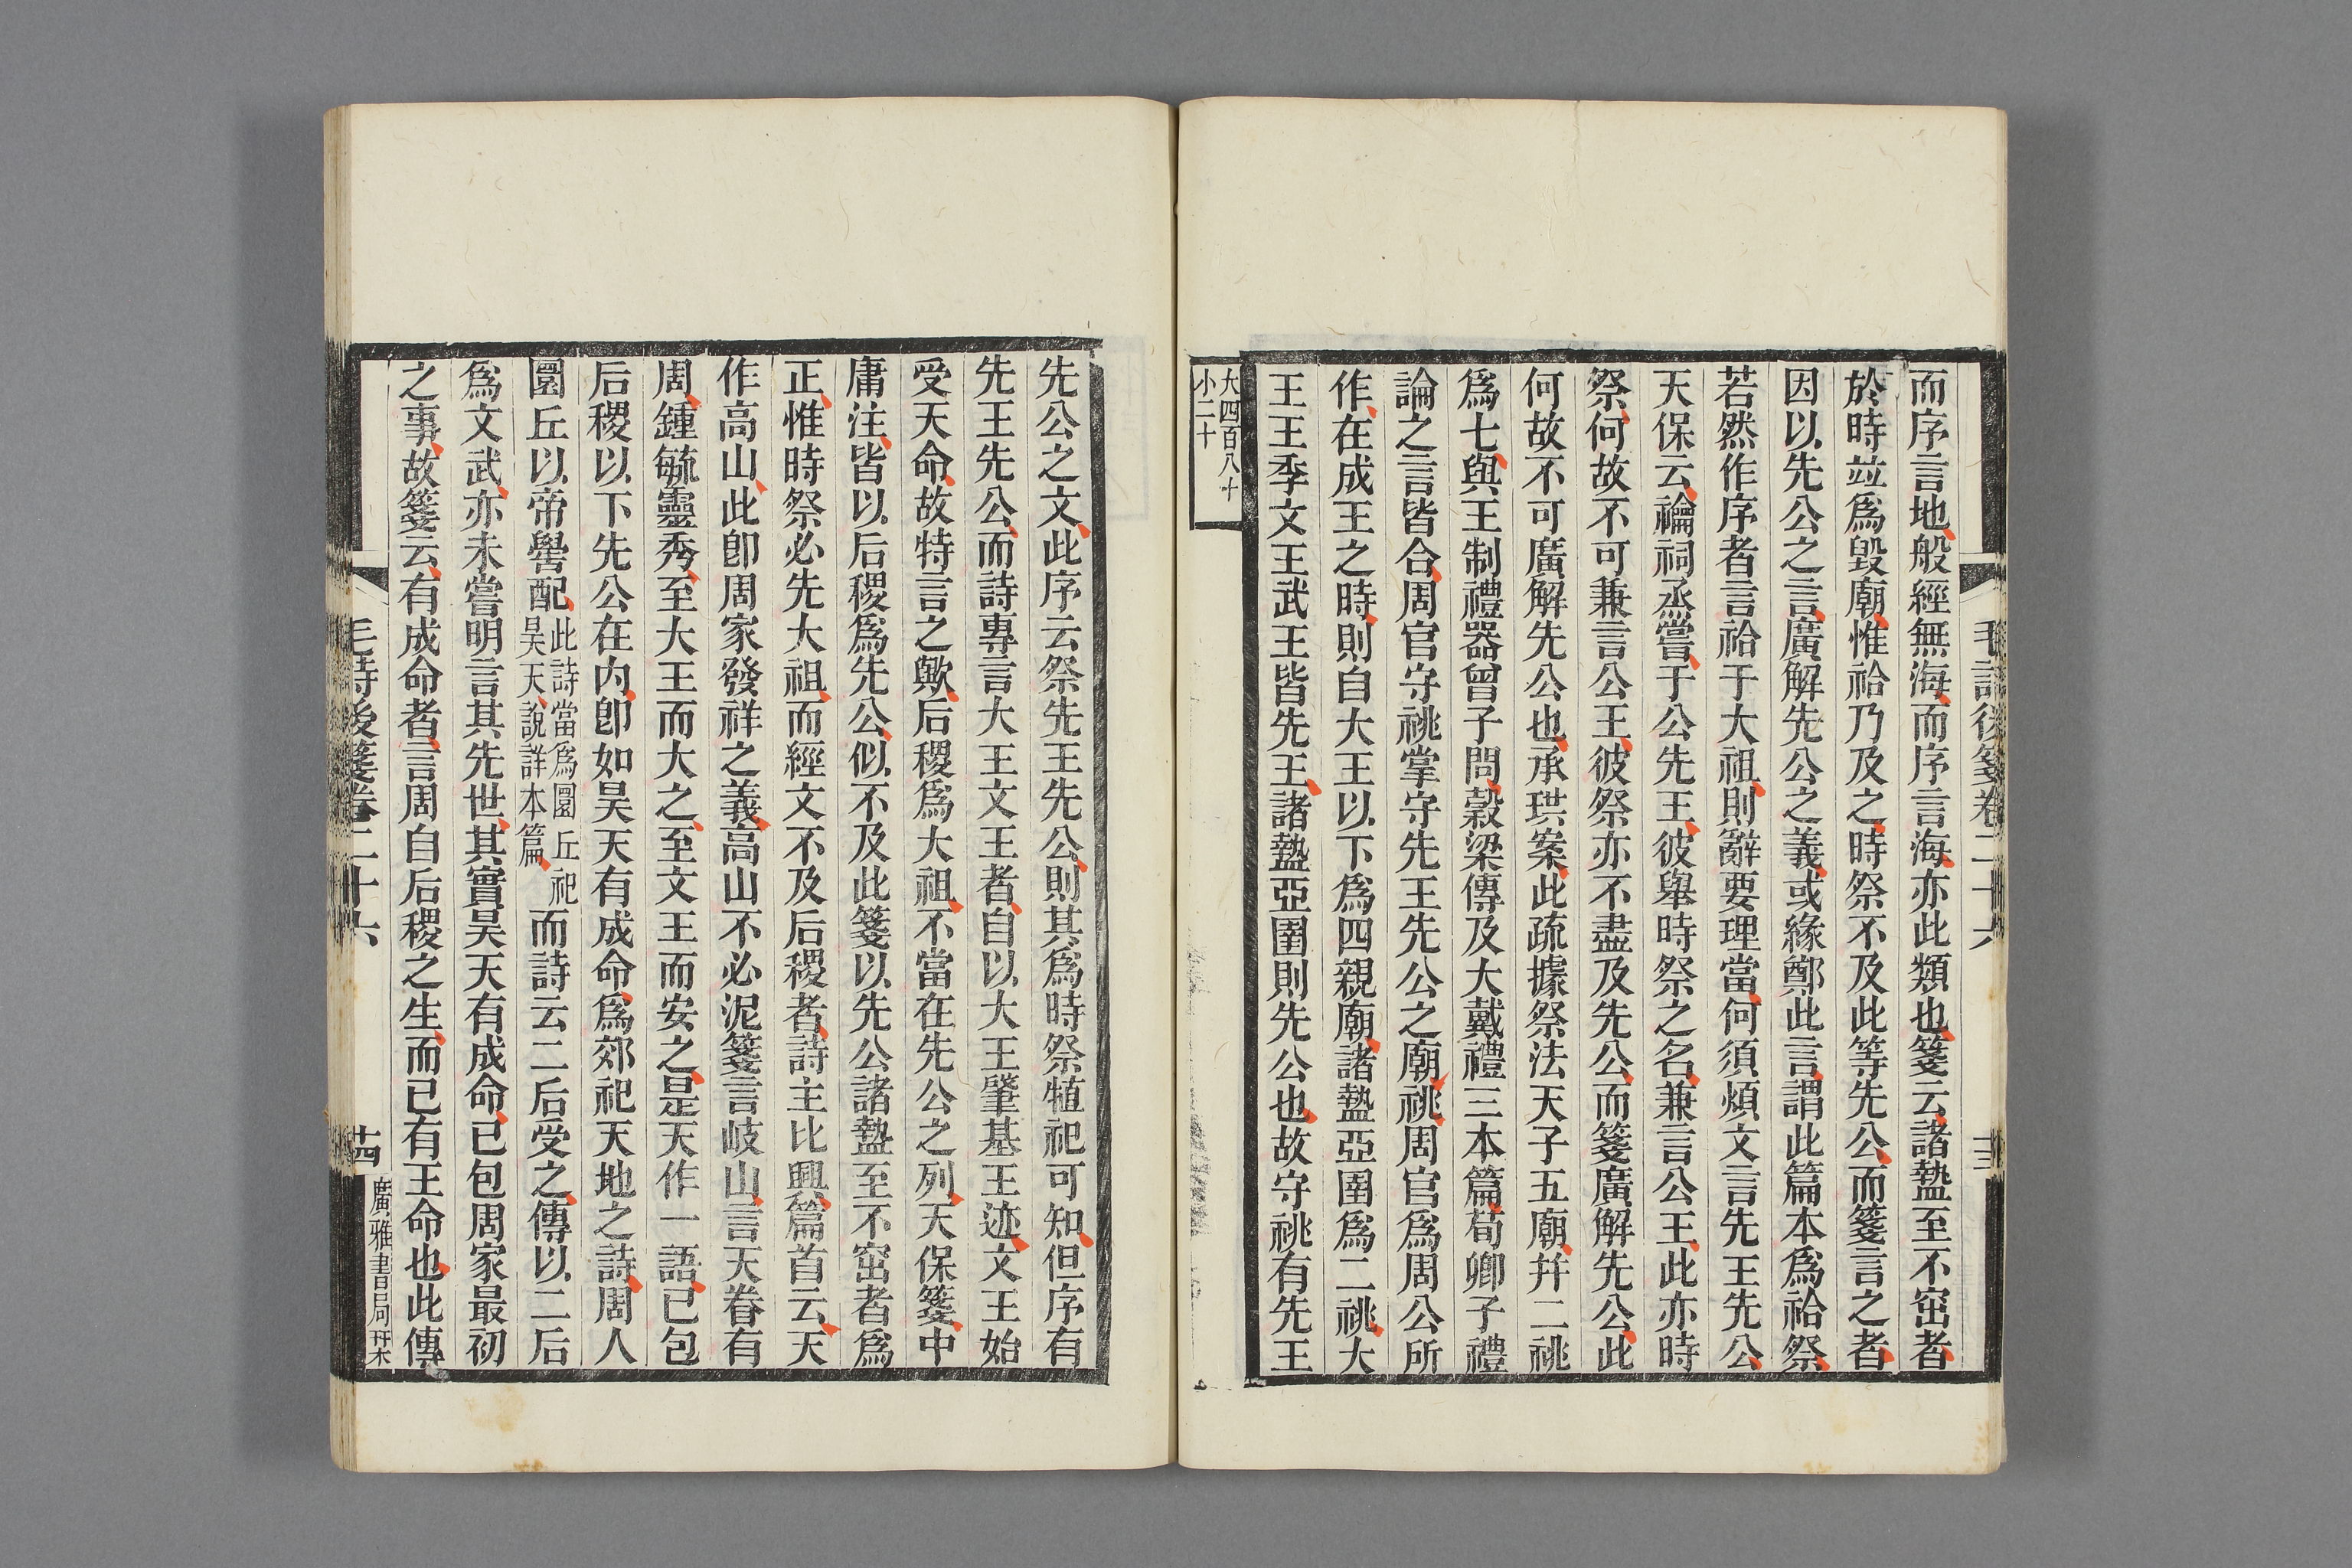 毛詩後箋卷二十六
十三
而序言地般經無海而序言海亦此類也箋云諸盩至不窋者
於時並爲毀廟惟祫乃及之時祭不及此等先公而箋言之者
因以先公之言廣解先公之義或緣鄭此言謂此篇本爲祫祭
若然作序者言祫于大祖則辭要理當何須煩文言先王先公
天保云禴祠烝嘗于公先王彼舉時祭之名兼言公王此亦時
祭何故不可兼言公王彼祭亦不盡及先公而箋廣解先公此
何故不可廣解先公也承珙案此疏據祭法天子五廟并二祧
爲七與王制禮器曾子問穀梁傳及大戴禮三本篇荀卿子禮
論之言皆合周官守祧掌守先王先公之廟祧周官爲周公所
作在成王之時則自大王以下爲四親廟諸盩亞圉爲二祧大
王王季文王武王皆先王諸盩亞圉則先公也故守祧有先王
大四百八十
小二十
先公之文此序云祭先王先公則其爲時祭犆祀可知但序有
先王先公而詩專言大王文王者自以大王肇基王迹文王始
受天命故特言之歟后稷爲大祖不當在先公之列天保箋中
庸注皆以后稷爲先公似不及此箋以先公諸盩至不窋者爲
正惟時祭必先大祖而經文不及后稷者詩主比興篇首云天
作高山此卽周家發祥之義高山不必泥箋言岐山言天眷有
周鍾毓靈秀至大王而大之至文王而安之是天作一語已包
后稷以下先公在内卽如昊天有成命爲郊祀天地之詩周人
圜丘以帝嚳配此詩當爲圜丘祀昊天說詳本篇而詩云二后受之傳以二后
爲文武亦未嘗明言其先世其實昊天有成命已包周家最初
之事故箋云有成命者言周自后稷之生而已有王命也此傳
毛詩後箋卷二十六
十四
廣雅書局栞